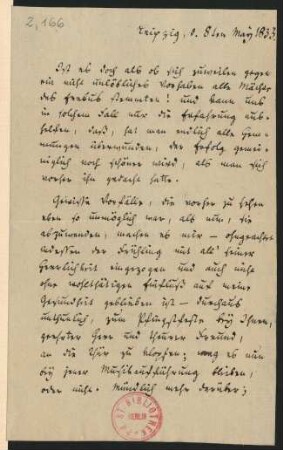 2,166
Leipzig, d. 8ten May 1833.
Ist es doch als ob sich zuweilen gegen
ein recht unlöbliches Vorhaben alle Mächte
des Erebus stemmten! und kann uns
in solchem Fall nur die Erfahrung aus-
helfen, daß, hat man endlich alle Hem-
mungen überwunden, der Erfolg gemei-
niglich noch schöner wird, als man sich
vorher ihn gedacht hatte.
Gewisse Vorfälle, die vorher zu sehen
eben so unmöglich war, als nun, sie
abzuwenden, machen es mir — ohngeachtet
indessen der Frühling mit all seiner
Herrlichkeit eingezogen und auch nicht
ohne wohlthätigen Einfluß auf meine
Gesundheit geblieben ist — durchaus
unthunlich, zum Pfingstfeste bey Ihnen,
geehrter Herr und theurer Freund,
an die Thür zu klopfen; mag es nun
bey jener Musikaufführung bleiben,
oder nicht. Mündlich mehr darüber;
BIBLIOTHEK